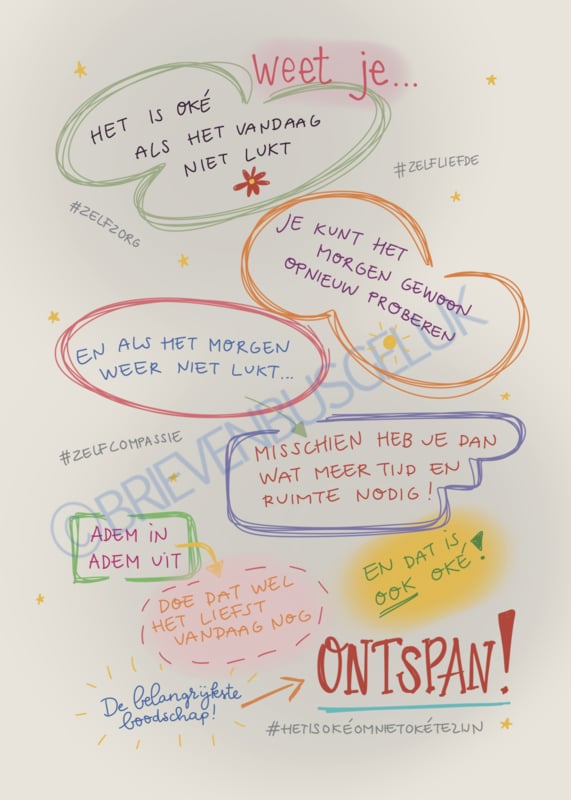 weet je...
HET IS OKÉ
ALS HET VANDAAG
NIET LUKT
#ZELFLIEFDE
#ZELFZORG
JE KUNT HET
MORGEN GEWOON
OPNIEUW PROBEREN
EN ALS HET MORGEN
WEER NIET LUKT...
#ZELFCOMPASSIE
MISSCHIEN HEB JE DAN
WAT MEER TIJD EN
RUIMTE NODIG!
©BRIEVENBUSGELUK
ADEM IN
ADEM UIT
EN DAT IS
OOK OKÉ!
DOE DAT WEL
HET LIEFST
VANDAAG NOG
ONTSPAN!
De belangrijkste
boodschap!
#HETISOKÉOMNIETOKÉTEZIJN